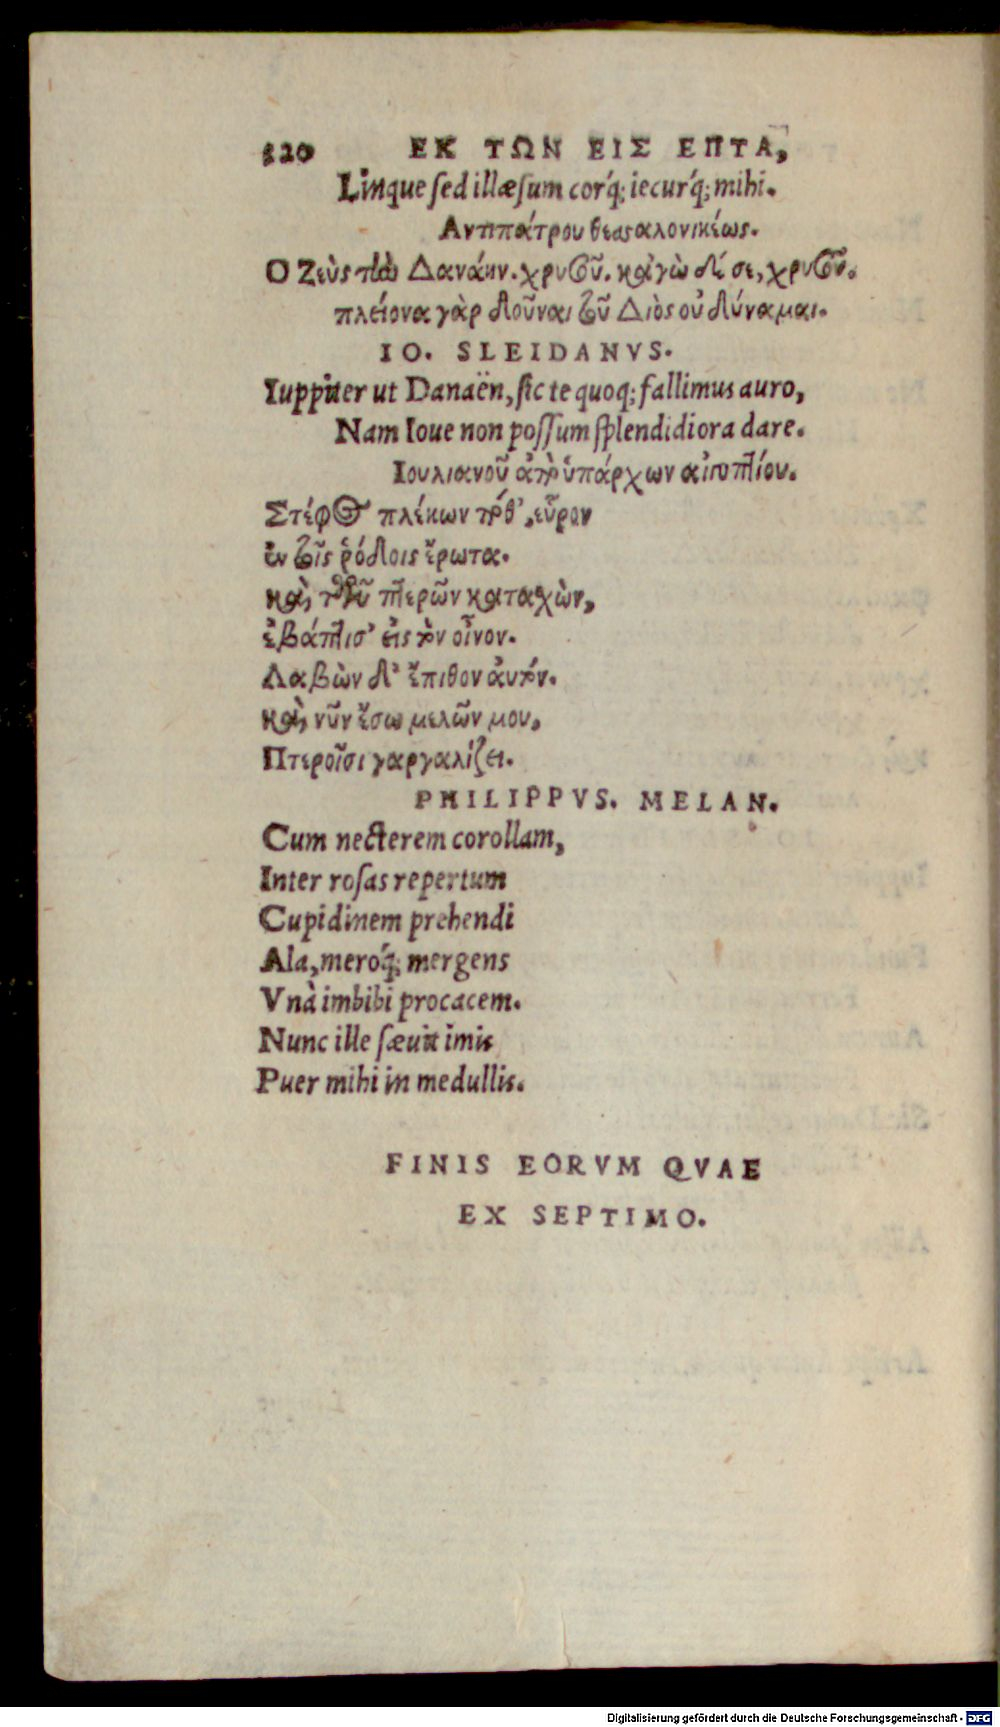 320 ΕΚ ΤΩΝ ΕΙΣ ΕΠΤΑ,
Linque sed illæsum cor´q; iecur´q; mihi.
Αντιπάτρου θεσσαλονικέως.
Ο Ζεὺς τὴν Δανάην. χρυσοῦ. κᾀγὼ δέ σε, χρυσοῦ.
πλείονα γὰρ δοῦναι τοῦ Διὸς οὐ δύναμαι.
IO. SLEIDANVS.
Iuppiter ut Danaën, sic te quoq; fallimus auro,
Nam Ioue non possum splendidiora dare.
Ιουλιανοῦ ἀπὸ ὑπάρχων αἰγυπτίου.
Στέφος πλέκων ποθ᾽, εὗρον
ἐν τοῖς ῥόδοις ἔρωτα.
καὶ τῶν πτερῶν κατασχὼν,
ἐβάπτισ᾽ εἰς τὸν οἶνον.
Λαβὼν δ᾽ ἔπιθον ἀυτόν.
καὶ νῦν ἔσω μελῶν μου,
Πτεροῖσι γαργαλίζει.
PHILIPPVS. MELAN.
Cum necterem corollam,
Inter rosas repertum
Cupidinem prehendi
Ala, mero´q; mergens
Vnà imbibi procacem.
Nunc ille sæuit imis
Puer mihi in medullis.
FINIS EORVM QVAE
EX SEPTIMO.
Digitalisierung gefördert durch die Deutsche Forschungsgemeinschaft - DFG